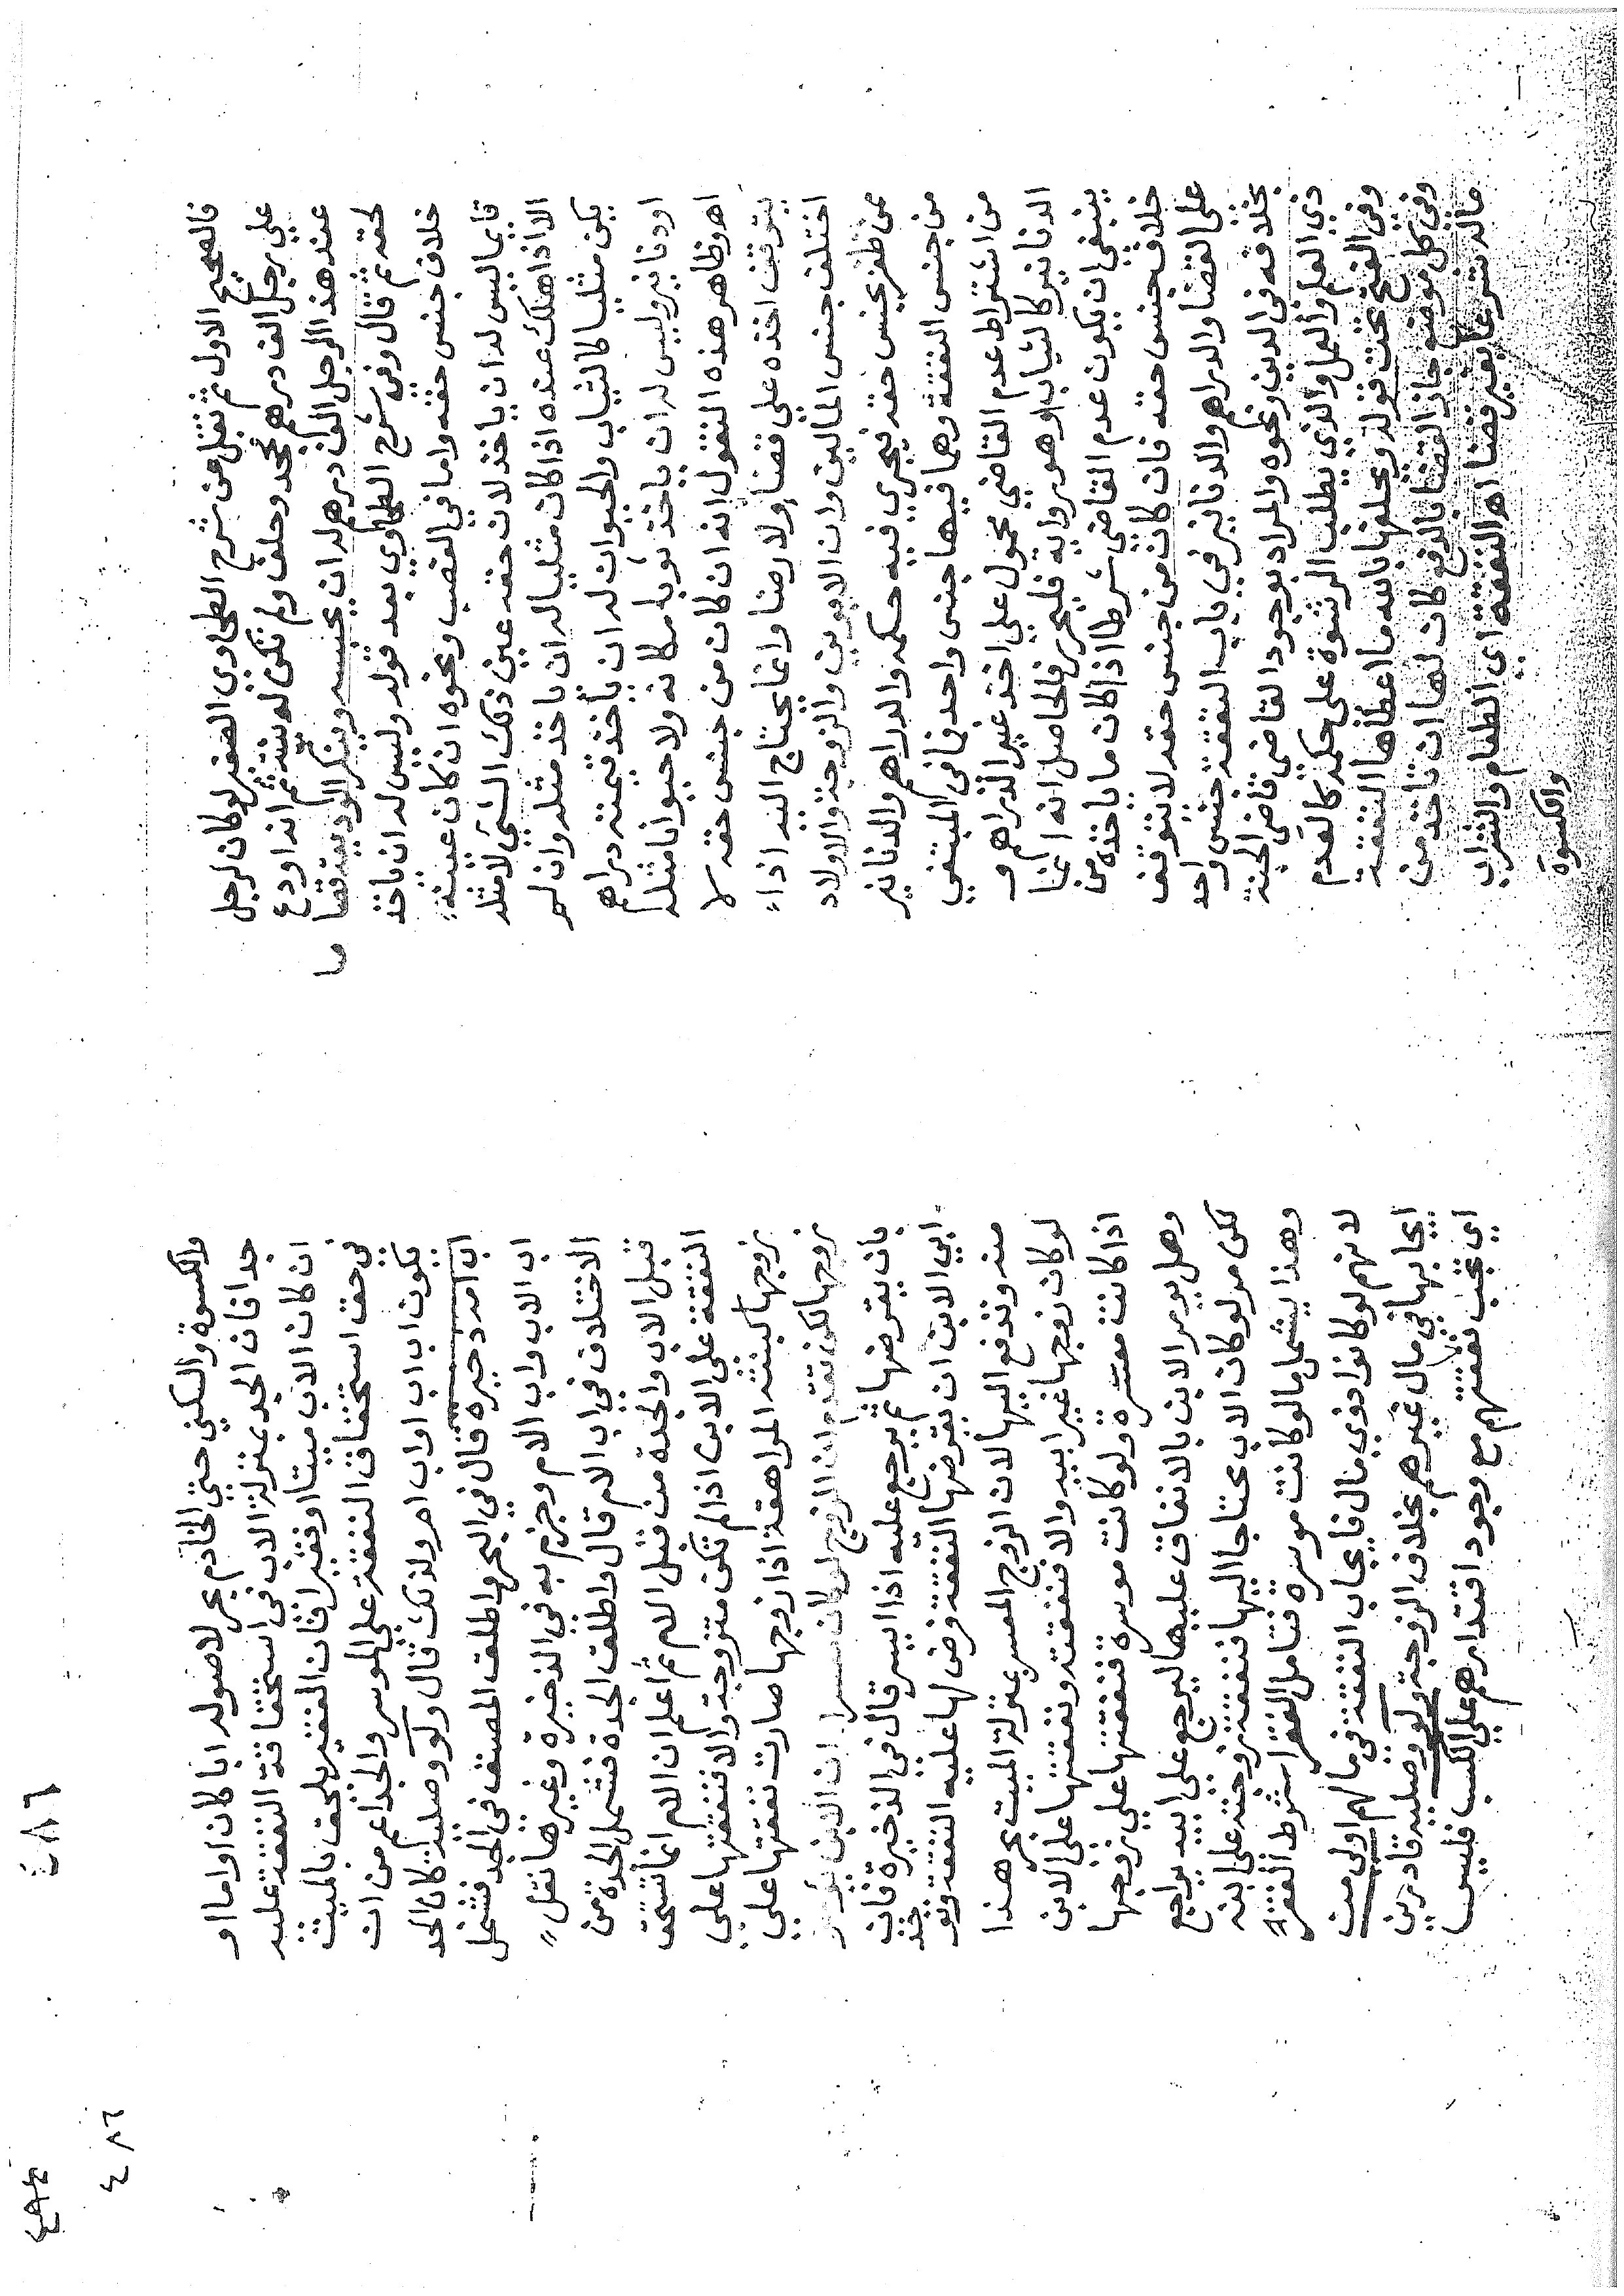 فالصحيح الاول ثم نقل عن شرح الطحاوي الصغير لو كان لرجل
علي رجل الف درهم فجحد وحلف ولم تكن له بينة ثم انه اودع
عند هذا الرجل الف درهم له ان يحبسه وينكر الوديعة قضا
لحقه ثم قال وفي شرح الطحاوي بعد قوله وليس له ان ياخذ
خلاف جنس حقه واما في الغصب ونحوه ان كان عينه
قايما ليس له ان ياخذ لان حقه عين ذلك الشي لا مثله
الا اذا هلك عنده اذا كان مثليا له ان ياخذ مثله وان لم
يكن مثليا كالثياب والحيوان له ان ياخذ قيمته دراهم
او دنانير وليس له ان ياخذ ثوبا مكانه ولا حيوانا مثله
اهـ وظاهر هذه النقول انه ان كان من جنس حقه لا
يتوقف اخذه علي قضا ولا رضا وانما يحتاج اليه اذا
اختلف جنس المالين وان الابوين والزوجة والاولاد
ممن ظفر بجنس حقه فيجري فيه حكمه والدراهم والدنانير
من جنس النفقة وهما فيها جنس واحد فما في المبتغي
من اشتراط عدم القاضي محمول علي اخذ غير الدراهم و
الدنانير كالثياب او هو رواية فليحرر فالحاصل انه انما
ينبغي ان يكون عدم القاضي شرطا اذا كان ما ياخذه من
خلاف جنس حقه فان كان من جنس حقه لا يتوقف
علي القضا والدراهم والدنانير في باب النفقة جنس واحد
بخلافه في الدين ونحوه والمراد بوجود القاضي قاضي الجنة
ذي العلم والعمل والذي يطلب الرشوة علي حكمه كالعدم
وفي الفتح تحت قوله ويحلفها بالله ما اعطاها النفقة
وفي كل موضع جاز القضا بالدفع كان لها ان تاخذ من
ماله شرعا بغير قضا اهـ النفقة اي الطعام والشراب
والكسوة
والكسوة والسكني حتي الخادم بحر لاصوله ابا كان او اما او
جدا فان الجد بمنزلة الاب في استحقاقه النفقة عليه
ان كان الاب ميتا او فقيرا فان الفقير يلحق بالميت
في حق استحقاق النفقة علي الموسر والجد اعم من ان
يكون اب اب او اب ام ولذلك قال ولو وصلية كان الجد
اب امه ذخيره قال في البحر واطلق المصنف في الجد فشمل
اب الاب واب الام وجزم به في الذخيرة وغيرها نقل
الاختلاف في اب الام قال واطلق الجدة فشمل الجدة من
قبل الاب والجدة من قبل الام ثم اعلم ان الام انما تستحق
النفقة علي الابن اذا لم تكن متزوجة والا فنفقتها علي
زوجها كبنته المراهقة اذا زوجها صارت نفقتها علي
زوجها لكن تقدم ان الزوج لو كان معسرا ان الابن يؤمر
بان يقرضها ثم يرجع عليه اذا ايسر قال في الذخيرة فان
ابي الابن ان يقرضها النفقة فرض لها عليه النفقة وتوخذ
منه وتدفع اليها لان الزوج المعسر بمنزلة الميت بحر هذا
لو كان زوجها غير ابيه والا فنفقته ونفقتها علي الابن
اذا كانت معسرة ولو كانت موسرة فنفقتها علي زوجها
وهل يومر الابن بالانفاق عليها ليرجع علي ابيه يراجع
لكن مر لو كان الاب محتاجا اليها فنفقة زوجته علي ابنه
وهذا يشمل ما لو كانت موسرة فتامل الفقرا شرط الفقر
لانهم لو كانوا ذوي مال فايجاب النفقة في مالهم اولي من
ايجابها في مال غيرهم بخلاف الزوجة ولو وصلية قادرين
اي تجب نفقتهم مع وجود اقتدارهم علي الكسب فليس
٤٨٦
٤٨٦